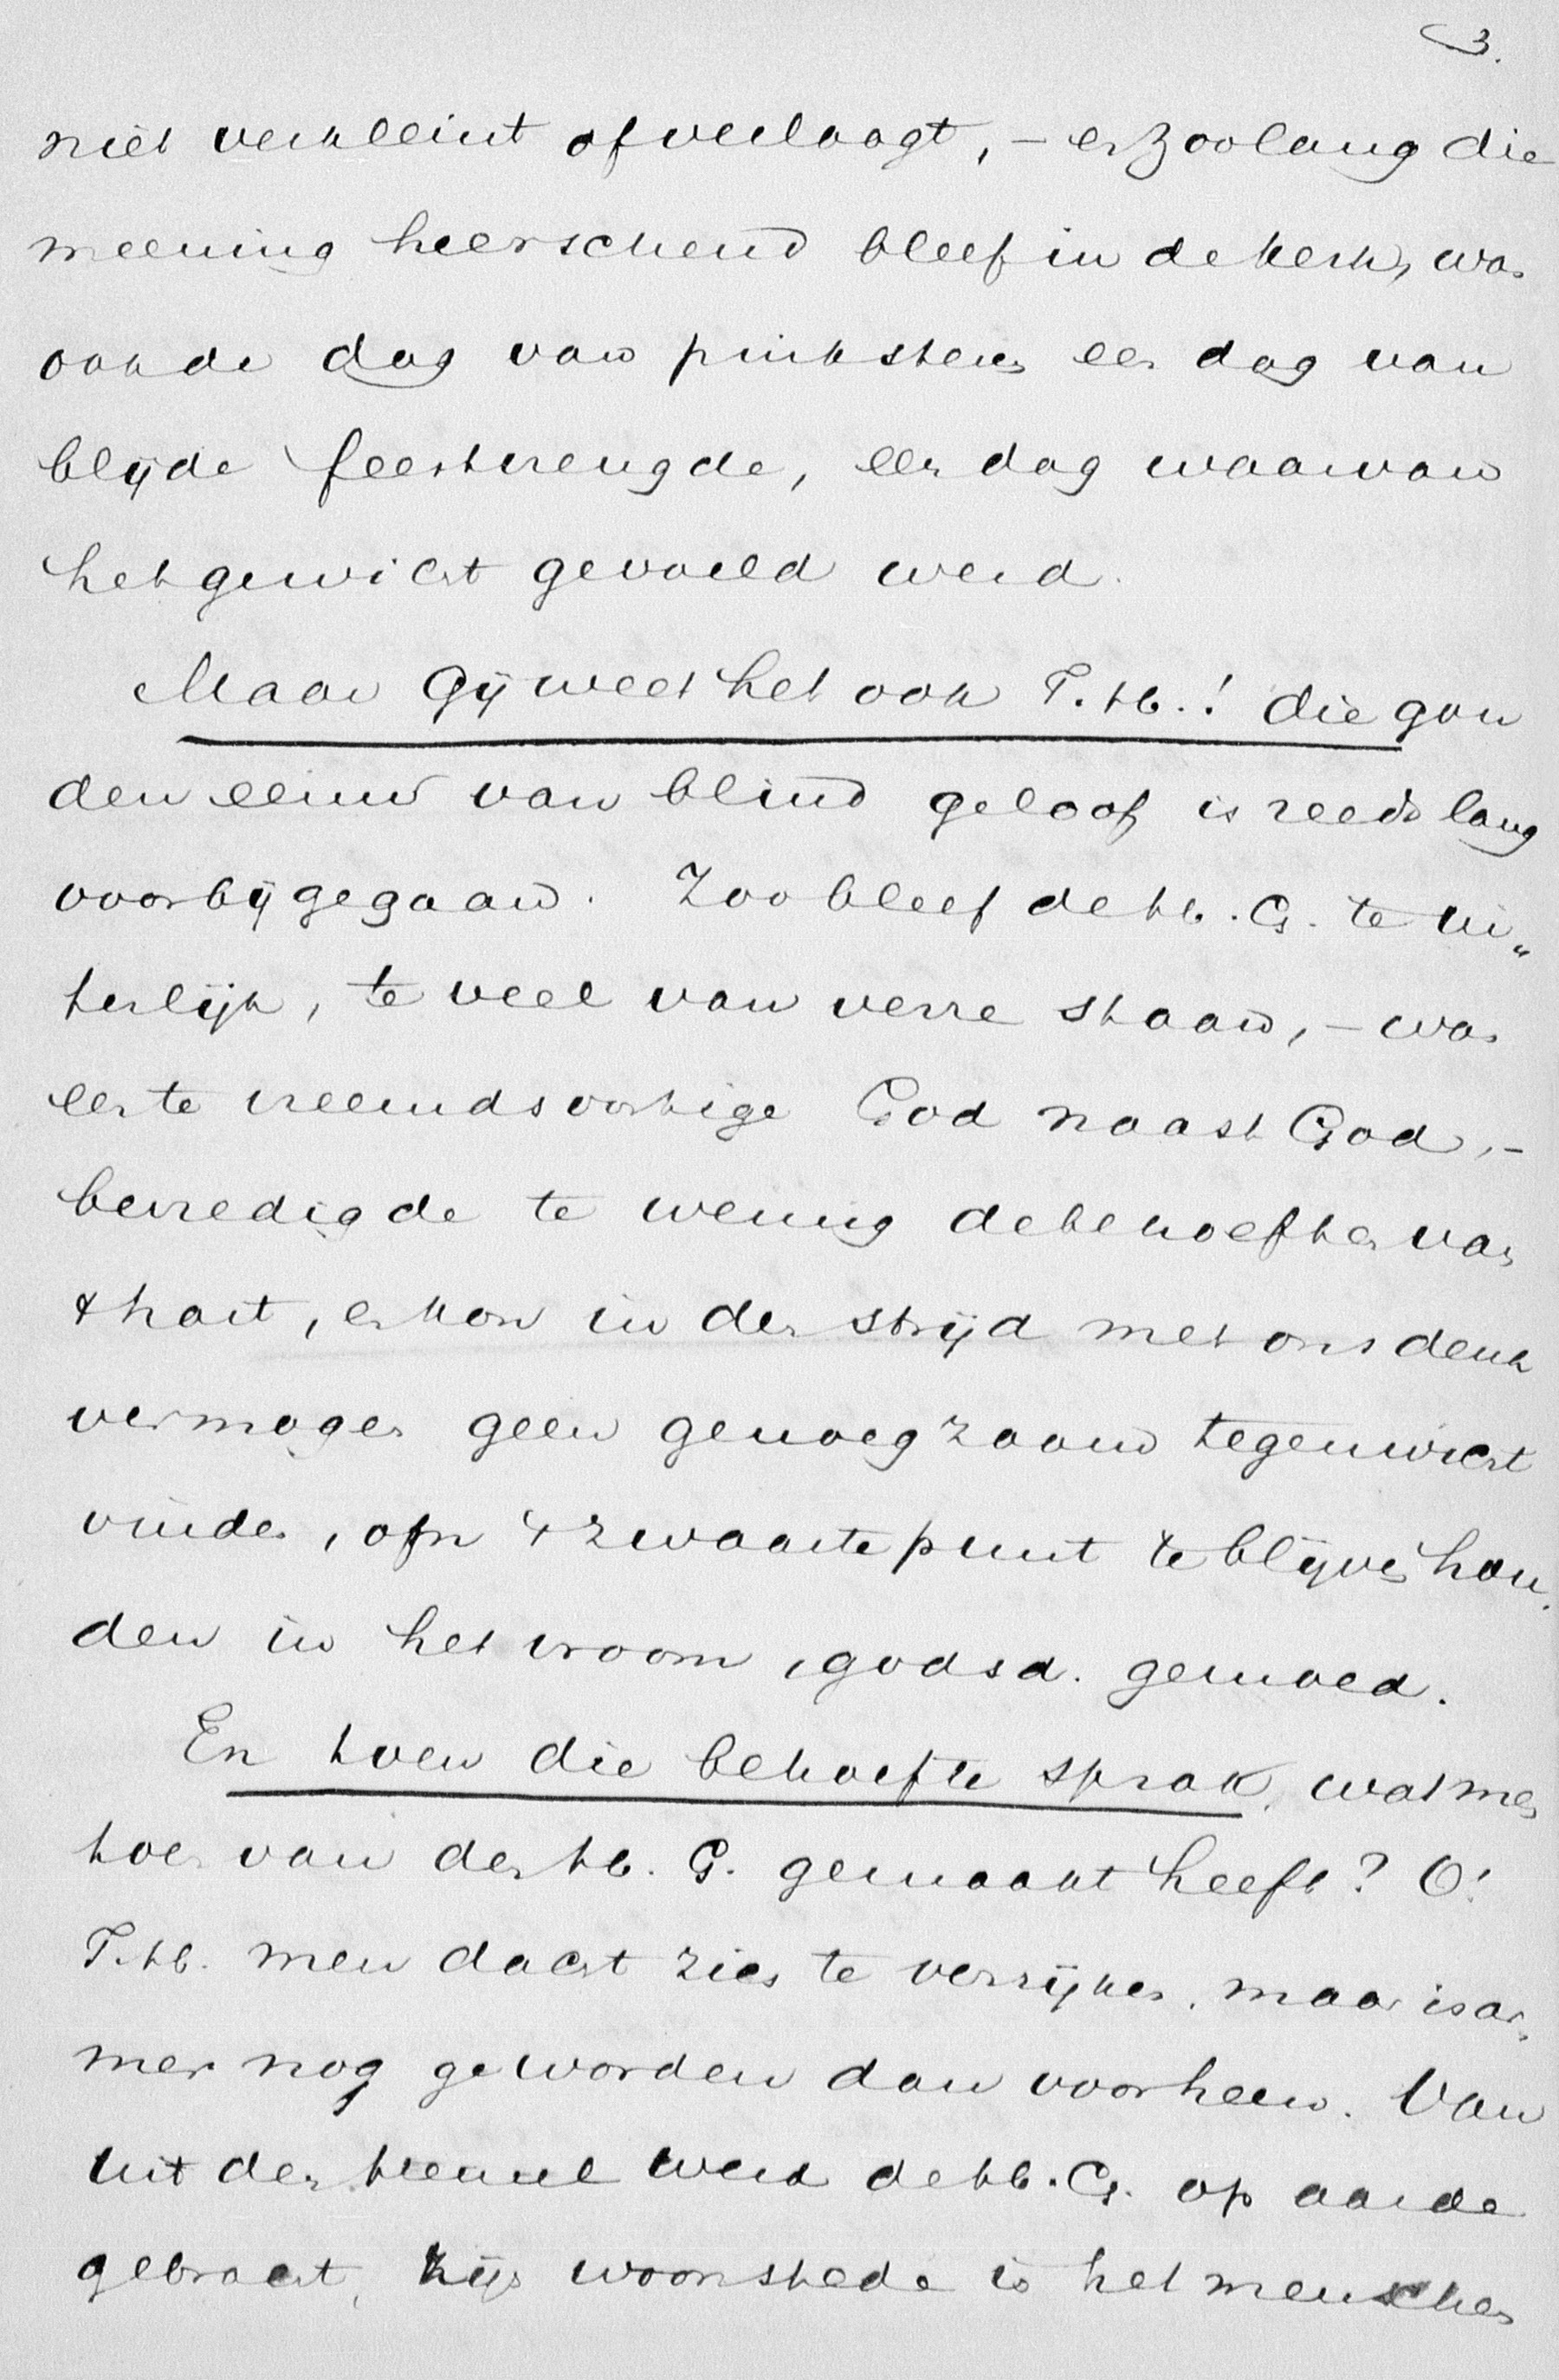 3.
niet verkleint of verlaagt, – en zoolang die
meening heerschend bleef in de kerk, was
ook de dag van pinksteren een dag van
blijde feestvreugde, een dag waarvan
het gewicht gevoeld werd.
Maar Gij weet het ook T. H.! die gou
den eeuw van blind geloof is reeds lang
voorbijgegaan. Zoo bleef de H. G. te ui„
terlijk, te veel van verre staan, – was
een te vreemdsoortige God naast God, –
bevredigde te weinig de behoeften van
't hart, en kon in den strijd met ons denk
vermogen geen genoegzaam tegenwicht
vinden, om 't zwaartepunt te blijven hou„
den in het vroom, godsd. gemoed.
En toen die behoefte sprak, wat men
toen van den H. G. gemaakt heeft? O!
T. H. men dacht zich te verrijken, maar is ar„
mer nog geworden dan voorheen. Van
uit den hemel werd de H. G. op aarde
gebracht, zijn woonstede is het menschen